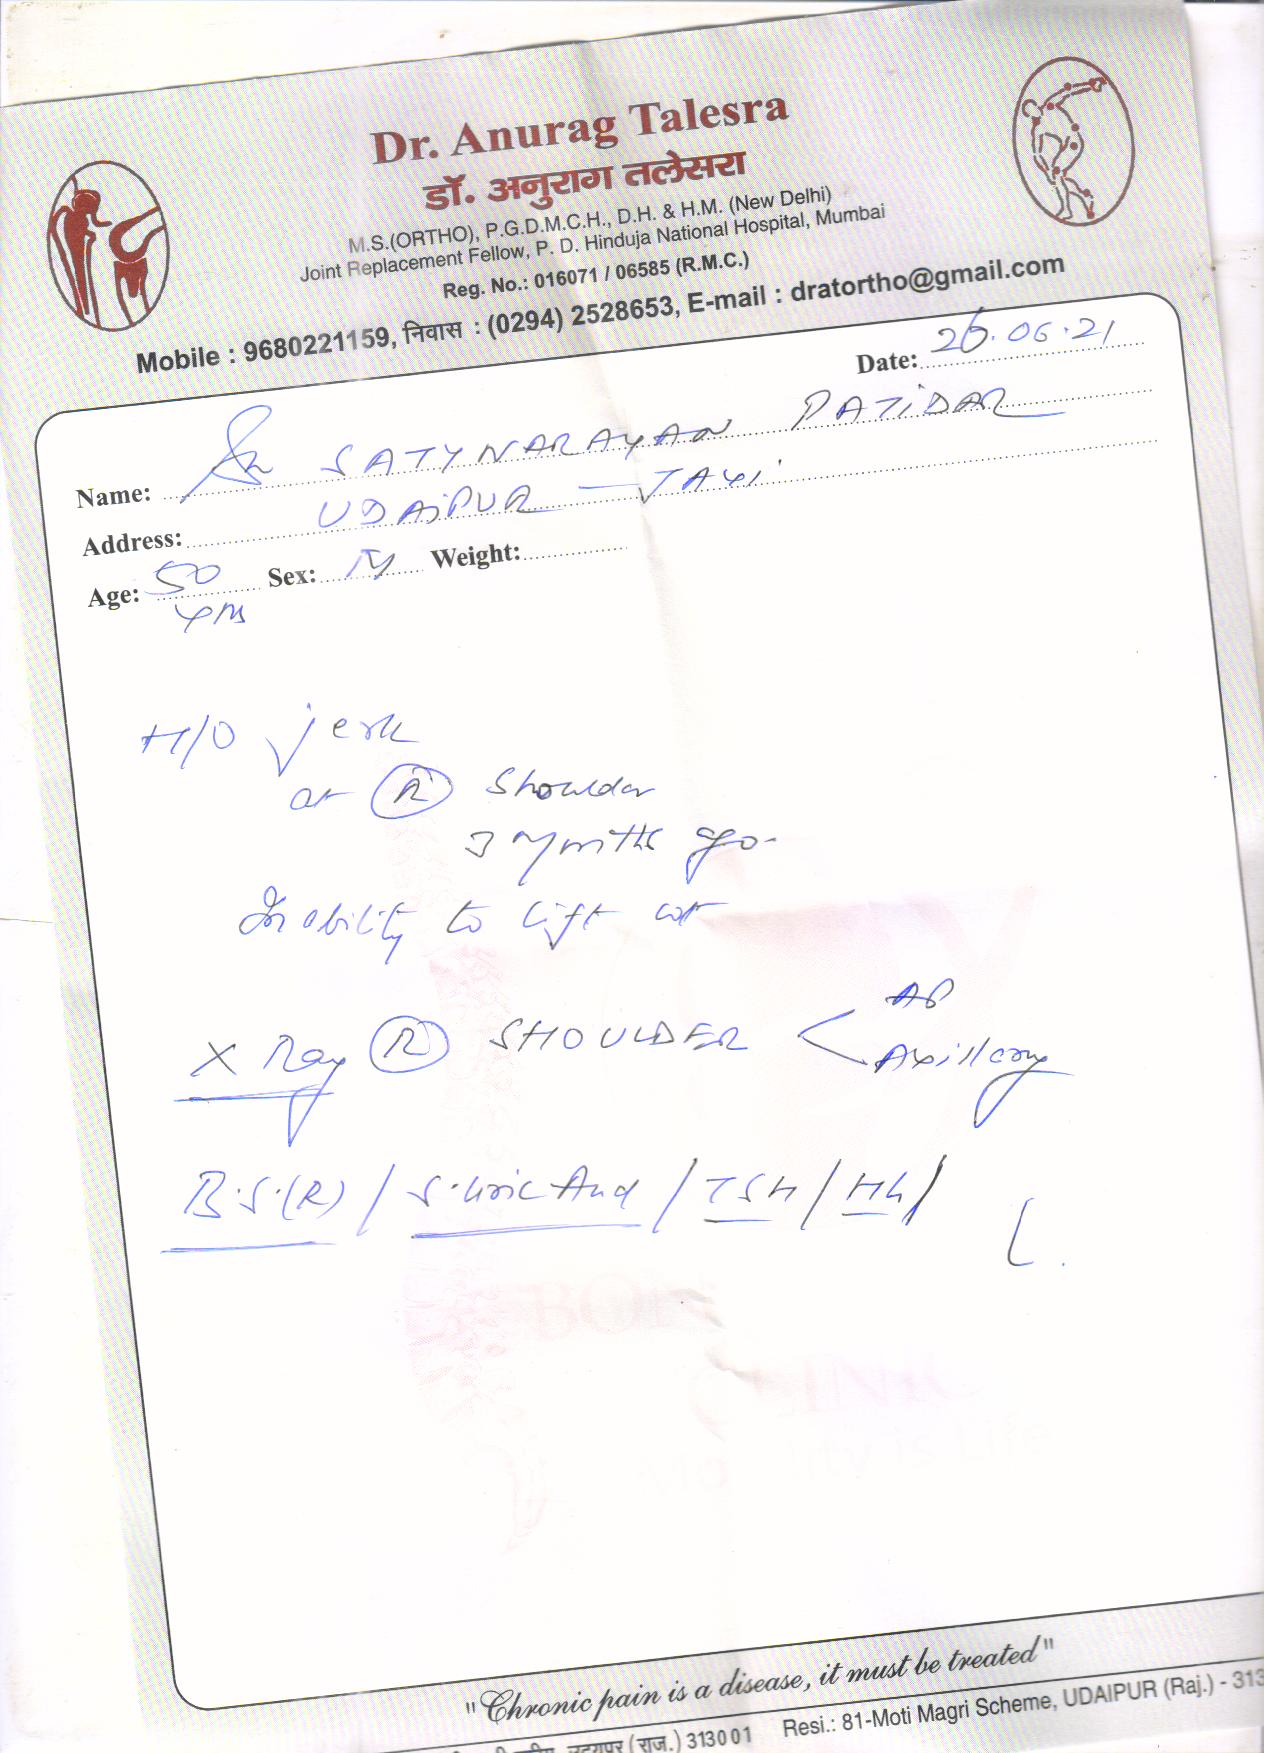 Dr. Anurag Talesra
डॉ. अनुराग तलेसरा
M.S.(ORTHO), P.G.D.M.C.H., D.H. & H.M. (New Delhi)
Joint Replacement Fellow, P. D. Hinduja National Hospital, Mumbai
Reg. No.: 016071 / 06585 (R.M.C.)
Mobile : 9680221159, निवास : (0294) 2528653, E-mail : dratortho@gmail.com
Date: 26.06.21
Name: SATYNARAYAN PATIDAR
Address: UDAIPUR -
Age: 50 Sex: M Weight:
H/O jerk
at R shoulder
3 months ago.
Inability to lift wt
X Ray R SHOULDER < AP
Axillary
B.S.(R) / S. Uric Acid / TSH /
"Chronic pain is a disease, it must be treated"
(राज.) 313001 Resi.: 81-Moti Magri Scheme, UDAIPUR (Raj.) - 313